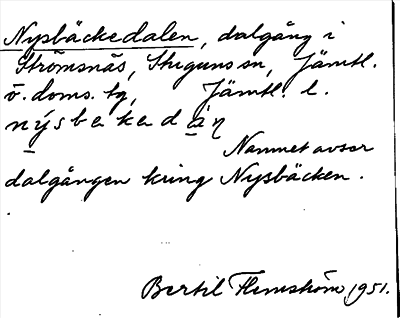 Nysbäckedalen, dalgång i
Strömsnäs, Stuguns sn, Jämtl.
ö. doms. tg, Jämtl. l.
nýsbekedàṇ
Namnet avser
dalgången kring Nysbäcken.
Bertil Flemström, 1951.